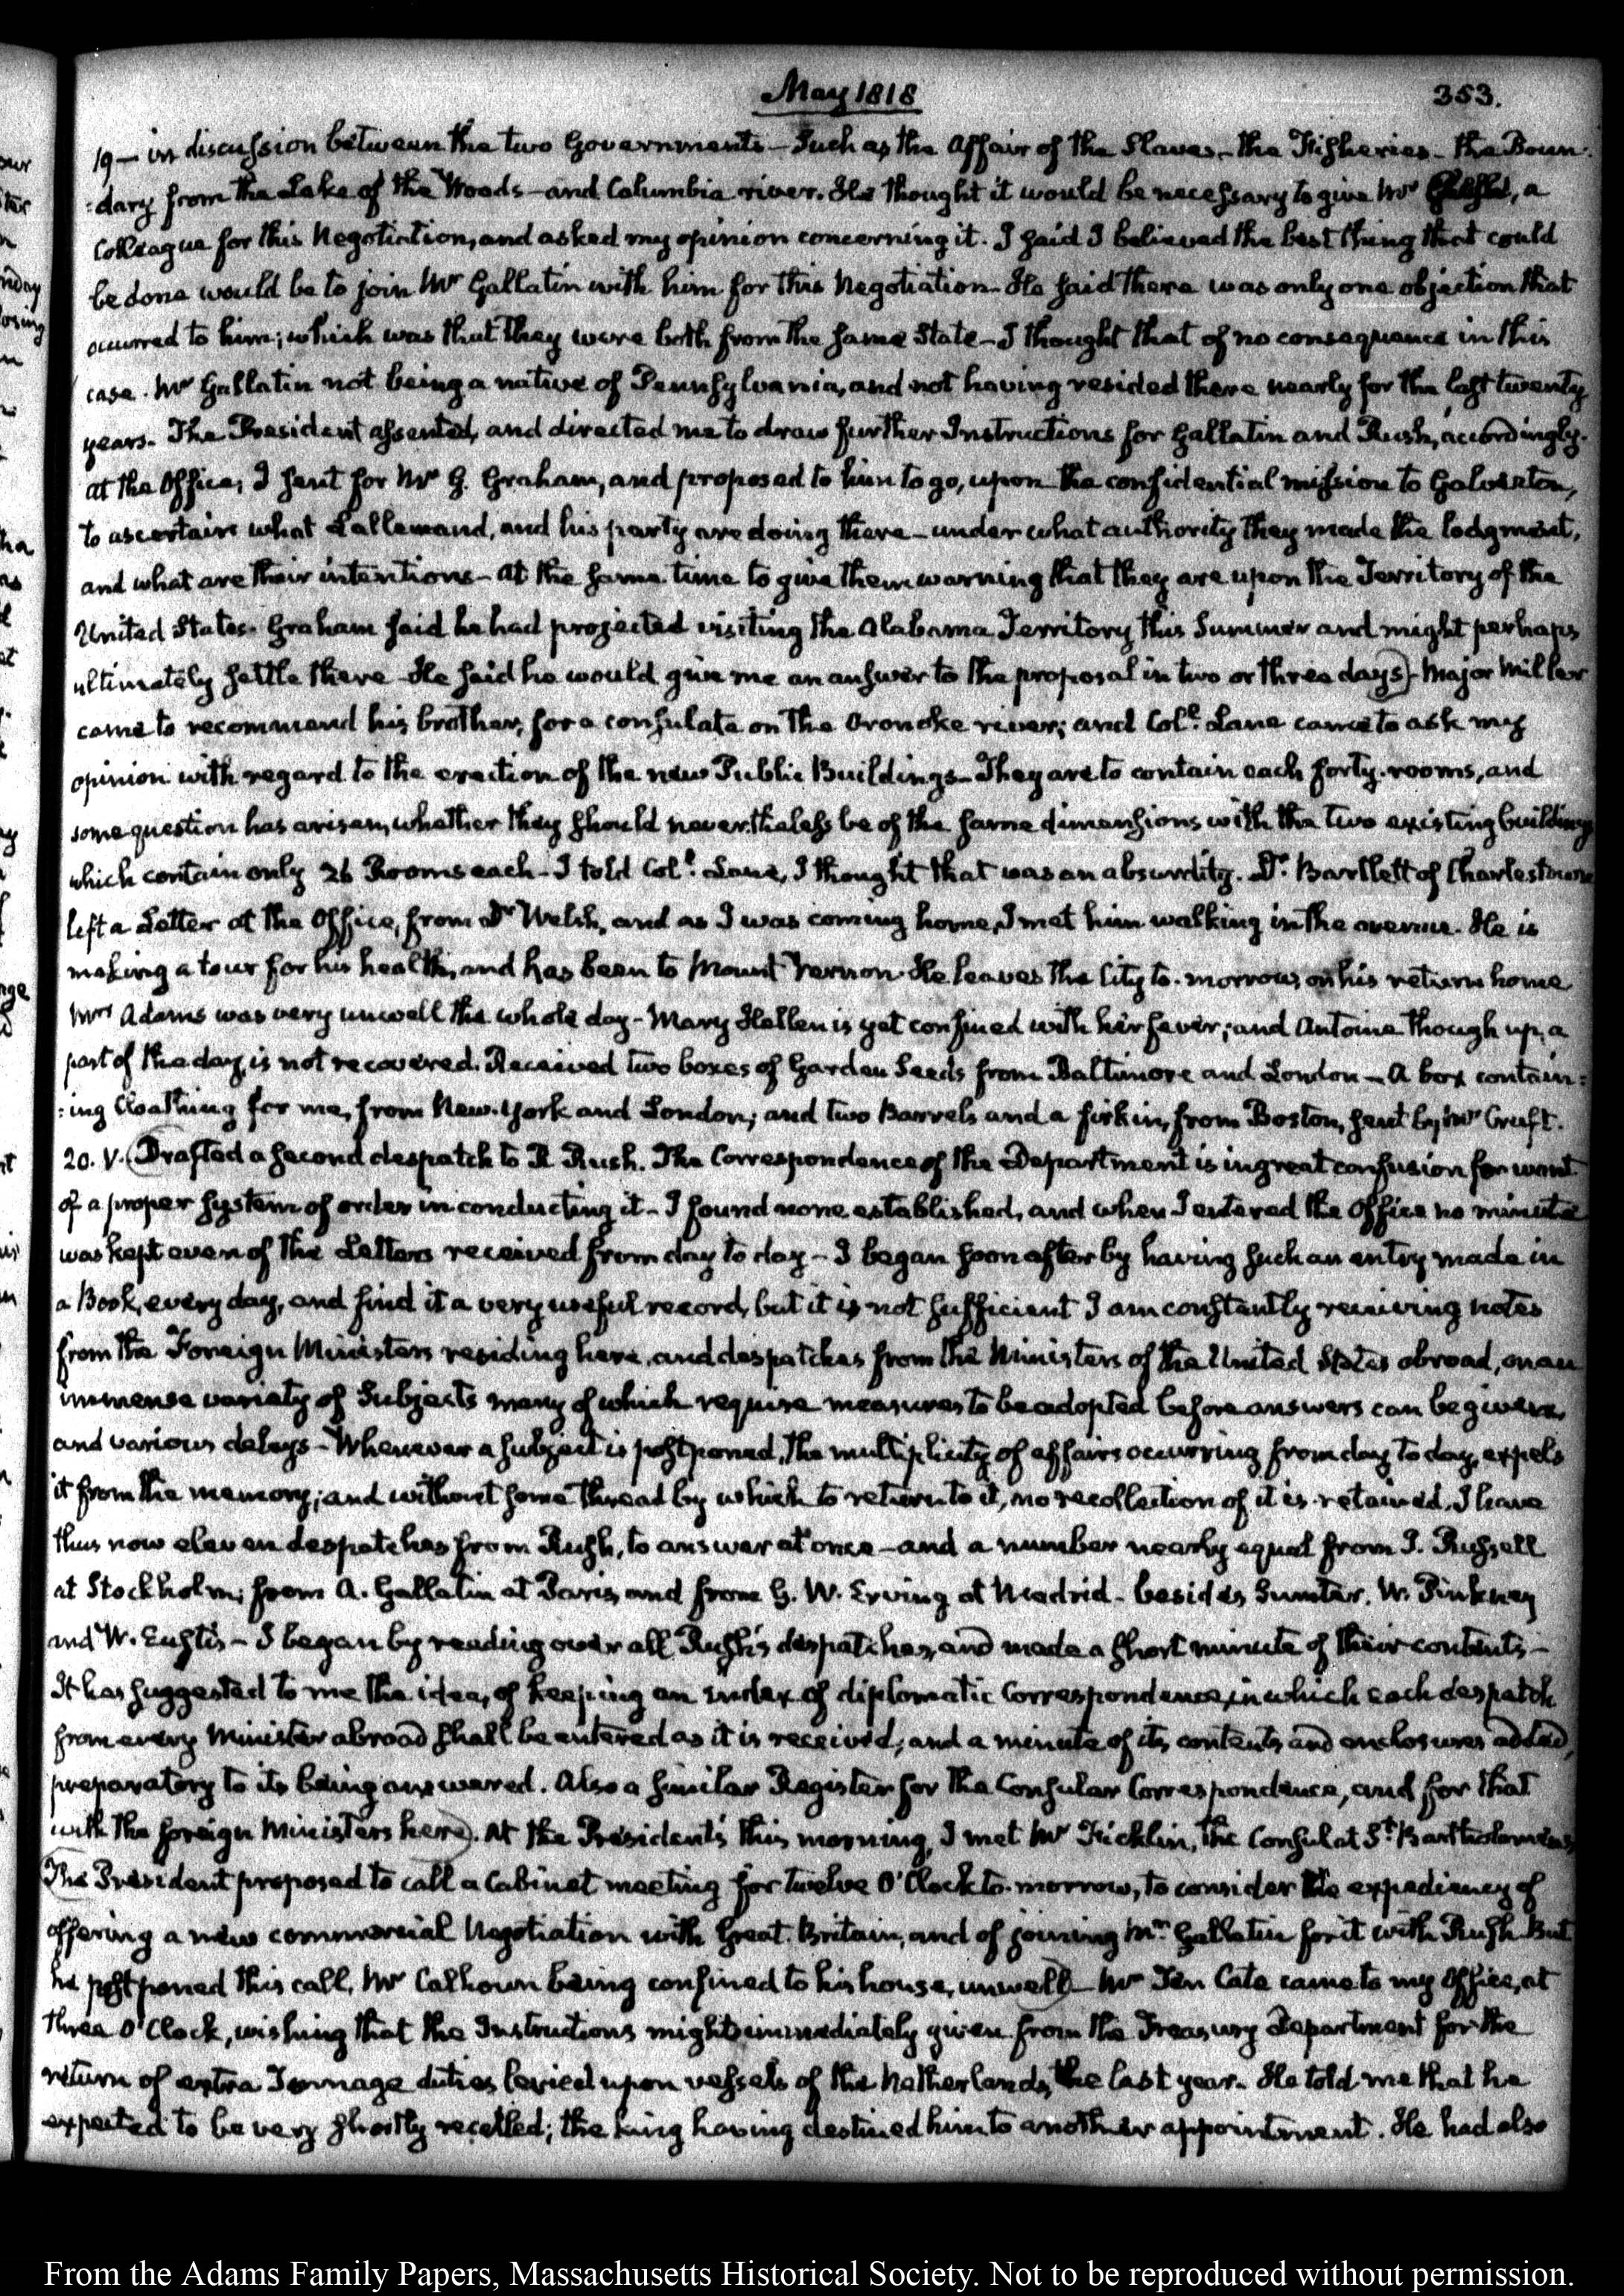 May 1818
353.
19 — in discussion between the two Governments — Such as the Affair of the Slaves — the Fisheries — the Boun-
:dary from the Lake of the Woods — and Columbia river. He thought it would be necessary to give Mr , a
Colleague for this Negotiation, and asked my opinion concerning it. I said I believed the best thing that could
be done would be to join Mr Gallatin with him for this Negotiation. He said there was only one objection that
occurred to him; which was that they were both from the same State — I thought that of no consequence in this
case. Mr Gallatin not being a native of Pennsylvania, and not having resided there nearly for the last twenty
years. The President assented, and directed me to draw further Instructions for Gallatin and Rush, accordingly.
At the Office, I sent for Mr G. Graham, and proposed to him to go, upon the confidential mission to Galveston,
to ascertain what Lallemand, and his party are doing there — under what authority they made the lodgment,
and what are their intentions — At the same time to give them warning that they are upon the Territory of the
United States. Graham said he had projected visiting the Alabama Territory this Summer and might perhaps
ultimately settle there — He said he would give me an answer to the proposal in two or three days) — Major Miller
came to recommend his brother, for a consulate on the Oronoke river; and Coll. Lane came to ask my
opinion with regard to the erection of the new Public Buildings — They are to contain each forty rooms, and
some question has arisen, whether they should nevertheless be of the same dimensions with the two existing buildings
which contain only 26 Rooms each — I told Coll. Lane, I thought that was an absurdity. Dr. Bartlett of Charlestown
left a Letter at the Office, from Dr Welsh, and as I was coming home, I met him walking in the avenue. He is
making a tour for his health, and has been to Mount Vernon. He leaves the City to-morrow, on his return home.
Mrs Adams was very unwell the whole day — Mary Hellen is yet confined with her fever; and Antoine though up, a
part of the day, is not recovered. Received two boxes of Garden Seeds from Baltimore and London — A box contain:
:ing Cloathing for me, from New-York and London; and two Barrels and a firkin, from Boston, sent by Mr Cruft.
20. V. (Drafted a second despatch to R. Rush. The Correspondence of the Department is in great confusion for want
of a proper system of order in conducting it — I found none established, and when I entered the Office no minute
was kept even of the Letters received from day to day — I began soon after by having such an entry made in
a Book, every day, and find it a very useful record, but it is not sufficient I am constantly receiving notes
from the Foreign Ministers residing here, and despatches from the Ministers of the United States abroad, on an
immense variety of Subjects many of which require measures to be adopted before answers can be given,
and various delays — Whenever a subject is postponed, the multiplicity of affairs occurring from day to day, expels
it from the memory; and without some thread by which to return to it, no recollection of it is retained. I have
thus now eleven despatches from Rush, to answer at once — and a number nearly equal from J. Russell
at Stockholm; from A. Gallatin at Paris, and from G. W. Erving at Madrid — besides Sumter, W. Pinkney
and W. Eustis — I began by reading over all Rush's despatches, and made a short minute of their contents —
It has suggested to me the idea, of keeping an index of diplomatic Correspondence, in which each despatch
from every Minister abroad shall be entered as it is received; and a minute of its contents and enclosures added,
preparatory to its being answered. Also a similar Register for the Consular Correspondence, and for that
with the foreign Ministers here). At the President's this morning, I met Mr Ficklin, the Consul at St. Bartholomews,
(The President proposed to call a Cabinet meeting for twelve O'Clock to-morrow, to consider the expediency of
offering a new commercial Negotiation with Great-Britain, and of joining Mr. Gallatin for it with Rush. But
he postponed this call, Mr Calhoun being confined to his house, unwell) — Mr Ten Cate came to my Office, at
three O'Clock, wishing that the Instructions might immediately given from the Treasury Department for the
return of extra Tonnage duties levied upon vessels of the Netherlands, the last year. He told me that he
expected to be very shortly recalled; the king having destined him to another appointment. He had also
From the Adams Family Papers, Massachusetts Historical Society. Not to be reproduced without permission.